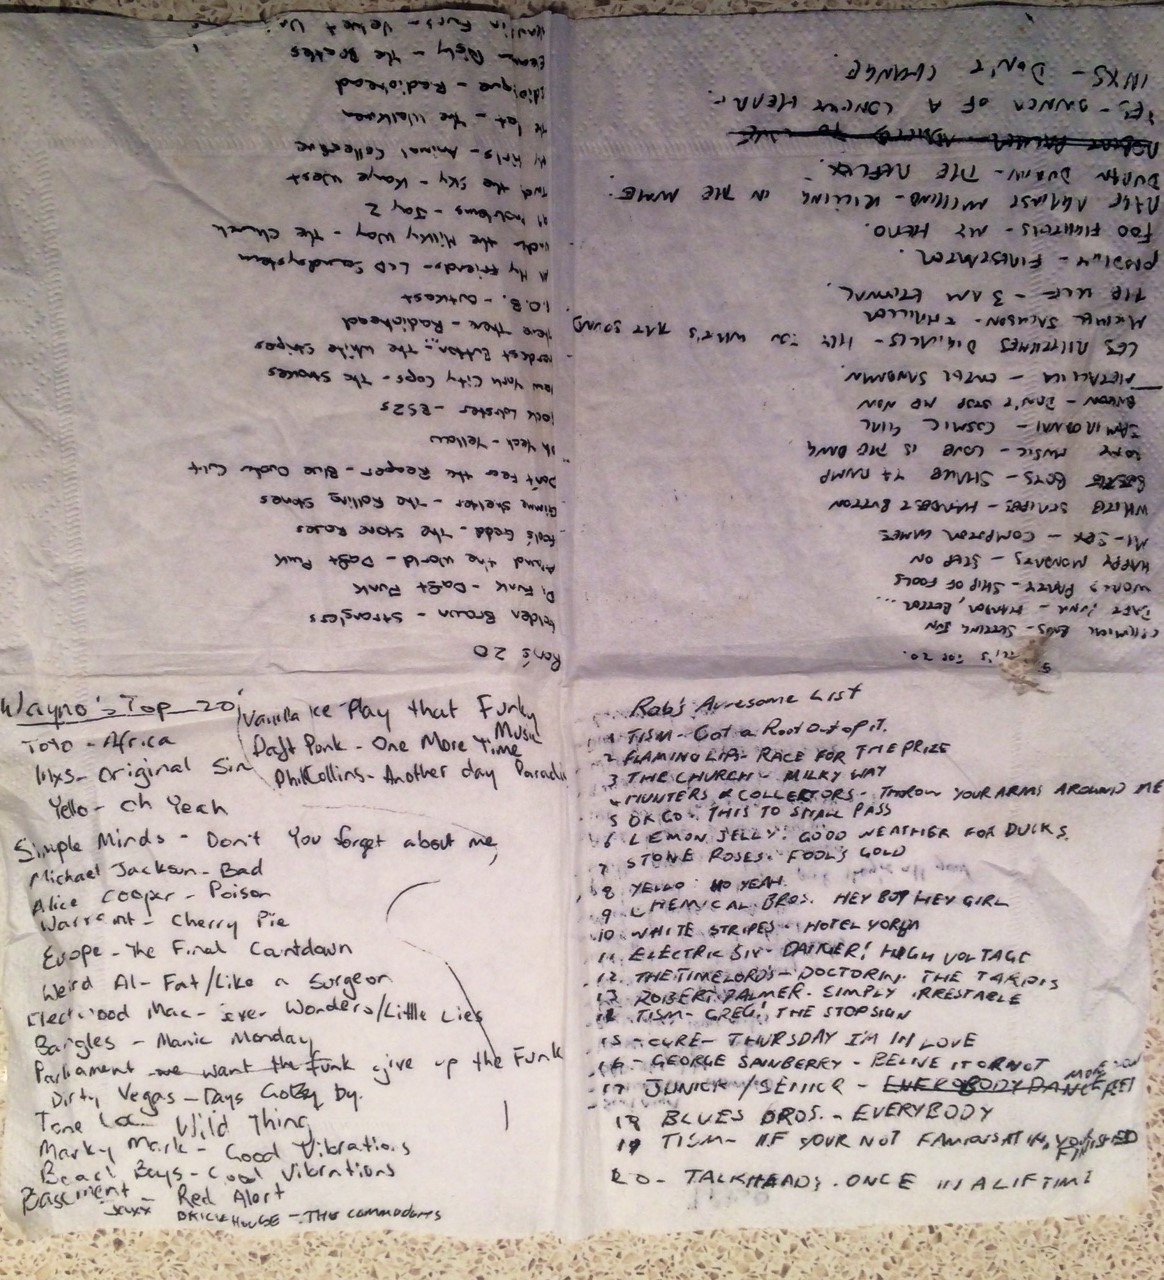 Wayno's Top 20
Toto - Africa
Inxs - Original Sin
Yello - Oh Yeah
Simple Minds - Don't You forget about me,
Michael Jackson - Bad
Alice Cooper - Poison
Warrent - Cherry Pie
Europe - The Final Countdown
Weird Al - Fat/Like a Surgeon
Fleetwood Mac - Wonders/Little Lies
Bangles - Manic Monday
Parliament we want the funk give up the Funk
Dirty Vegas - Days Go By by.
Tone Loc Wild Thing
Marky Mark - Good Vibrations
Beach Boys - Good Vibrations
Basement Jaxx - Red Alert
BRICKHOUSE - THE COMMODORES
Vanilla Ice Play that Funky Music
Daft Punk - One More Time
Phil Collins - Another day Paradi
Rob's Awesome List
1 TISM - Got a Root Out of it.
2 FLAMING LIPS - RACE FOR THE PRIZE
3 THE CHURCH - MILKY WAY
4 HUNTERS & COLLECTORS - THROW YOUR ARMS AROUND ME
5 OK GO - THIS TO SHALL PASS
6 LEMON JELLY. GOOD WEATHER FOR DUCKS.
7 STONE ROSES. FOOL'S GOLD
8 YELLO HO YEAH.
9 CHEMICAL BROS. HEY BOY HEY GIRL
10 WHITE STRIPES - HOTEL YORBA
11 ELECTRIC SIX - DANGER! HIGH VOLTAGE
12. THE TIMELORDS - DOCTORIN. THE TARDIS
13 ROBERT PALMER. SIMPLY IRRESTABLE
14 TISM - GREG! THE STOP SIGN
15 - CURE - THURSDAY I'M IN LOVE
16 - GEORGE SANBERRY - BELIVE IT OR NOT
17 JUNIOR/SENIOR - EVERYBODY DANCE MOVE YOU FEET
18 BLUES BROS. - EVERYBODY
19 TISM - IF YOUR NOT FAMOUS AT 14, YOU'R FINISHED
20 - TALKHEADS. ONCE IN A LIFTIME
Ron's 20
Golden Brown - Stranglers
Da Funk - Daft Punk
Around the World - Daft Punk
Fools Gold - The Stone Roses
Gimme Shelter - The Rolling Stones
Don't Fear the Reaper - Blue Oyster Cult
Oh Yeah - Yellow
Rock Lobster - B52s
New York City Cops - The Strokes
Hardest Button - The White Stripes
There There - Radiohead
B.O.B. - Outkast
All My Friends - LCD Soundsystem
Under the Milky Way - The Church
99 Problems - Jay Z
Touch the Sky - Kanye West
My Girls - Animal Collective
The Rat - The Walkmen
Idioteque - Radiohead
Eleanor Rigby - The Beatles
Venus in Furs - Velvet Un
TOP 20.
CHEMICAL BROS - SETTING SUN
DAFT PUNK - HARDER, BETTER...
WORLD PARTY - SHIP OF FOOLS
HAPPY MONDAYS - STEP ON
MI-SEX - COMPUTER GAMES
WHITE STRIPES - HARDEST BUTTON
BEASTIE BOYS - SHAKE YA RUMP
ROXY MUSIC - LOVE IS THE DRUG
JAMIROQUAI - COSMIC GIRL
BYRON - DON'T STOP ME NOW
METALLICA - ENTER SANDMAN.
LES RYTHMES DIGITALES - HEY YOU WHAT'S THAT SOUND
MICHAEL JACKSON - THRILLER
THE KLF - 3 AM ETERNAL
PRODIGY - FIRESTARTER
FOO FIGHTERS - MY HERO.
RAGE AGAINST MACHINE - KILLING IN THE NAME.
DURAN DURAN - THE REFLEX.
ROBERT PALMER ADDICTED TO LOVE
YES - OWNER OF A LONELY HEART.
INXS - DON'T CHANGE